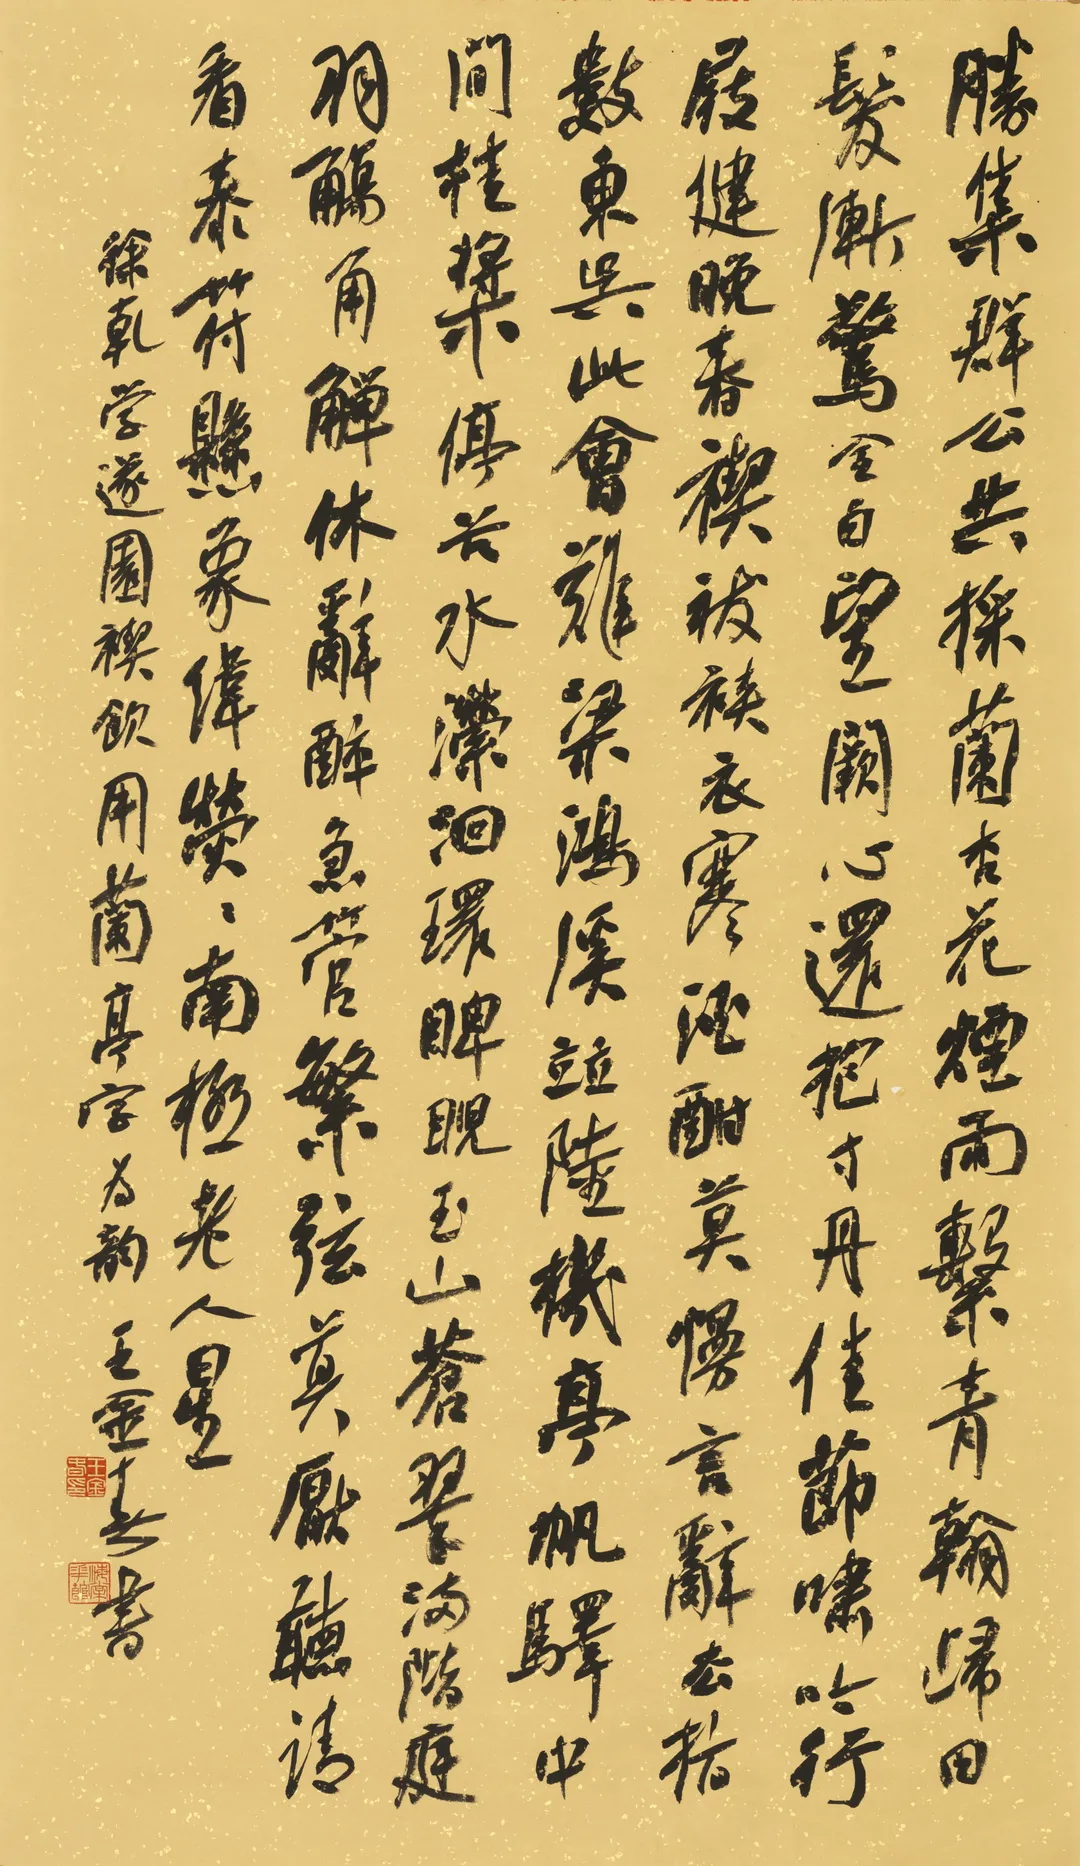 勝集群公共採蘭杏花煙雨繫青翰歸田
髮漸驚全白望闕心還抱寸丹佳節嘯吟行
屐健晚春禊祓裌衣寒酒酣莫慢言辭去指
數東吳此會難梁鴻溪竝陸機亭帆驛中
間桂槳停苕水瀠洄環睥睨玉山蒼翠滿階庭
羽觴角觶休辭醉急管繁弦莫厭聽請
看泰符懸象緯熒〻南極老人星
徐乾学遂園禊飲用蘭亭字为韵 王金春書